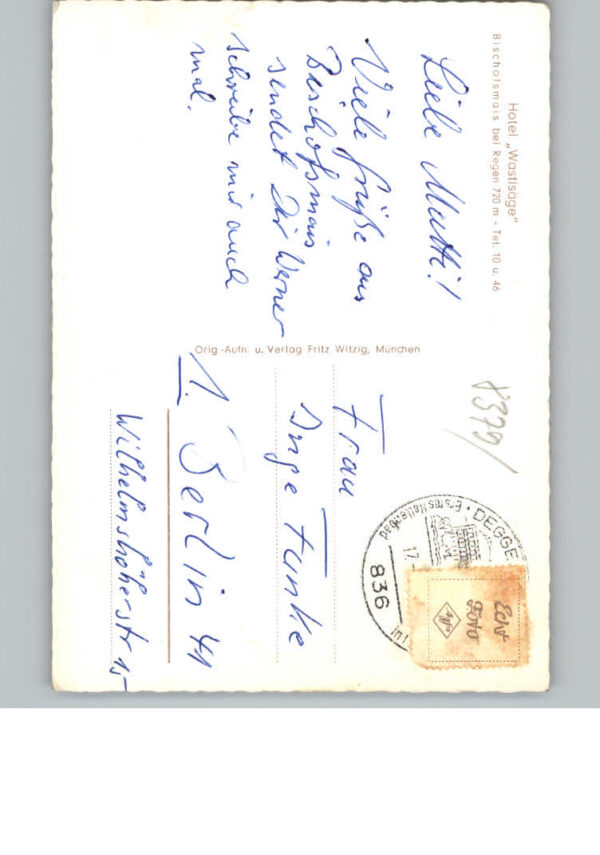 Hotel „Wastlsäge"
Bischofsmais bei Regen 720 m - Tel. 10 u. 46
Liebe Mutti!
Viele Grüße aus
Bischofsmais
sendet Dir Werner
schreibe mir auch
mal.
Orig.-Aufn. u. Verlag Fritz Witzig, München
8379/
DEGGE
836
17.
Echt
Foto
Agfa
Frau
Inge Funke
1 Berlin 41
Wilhelmshöherstr 15